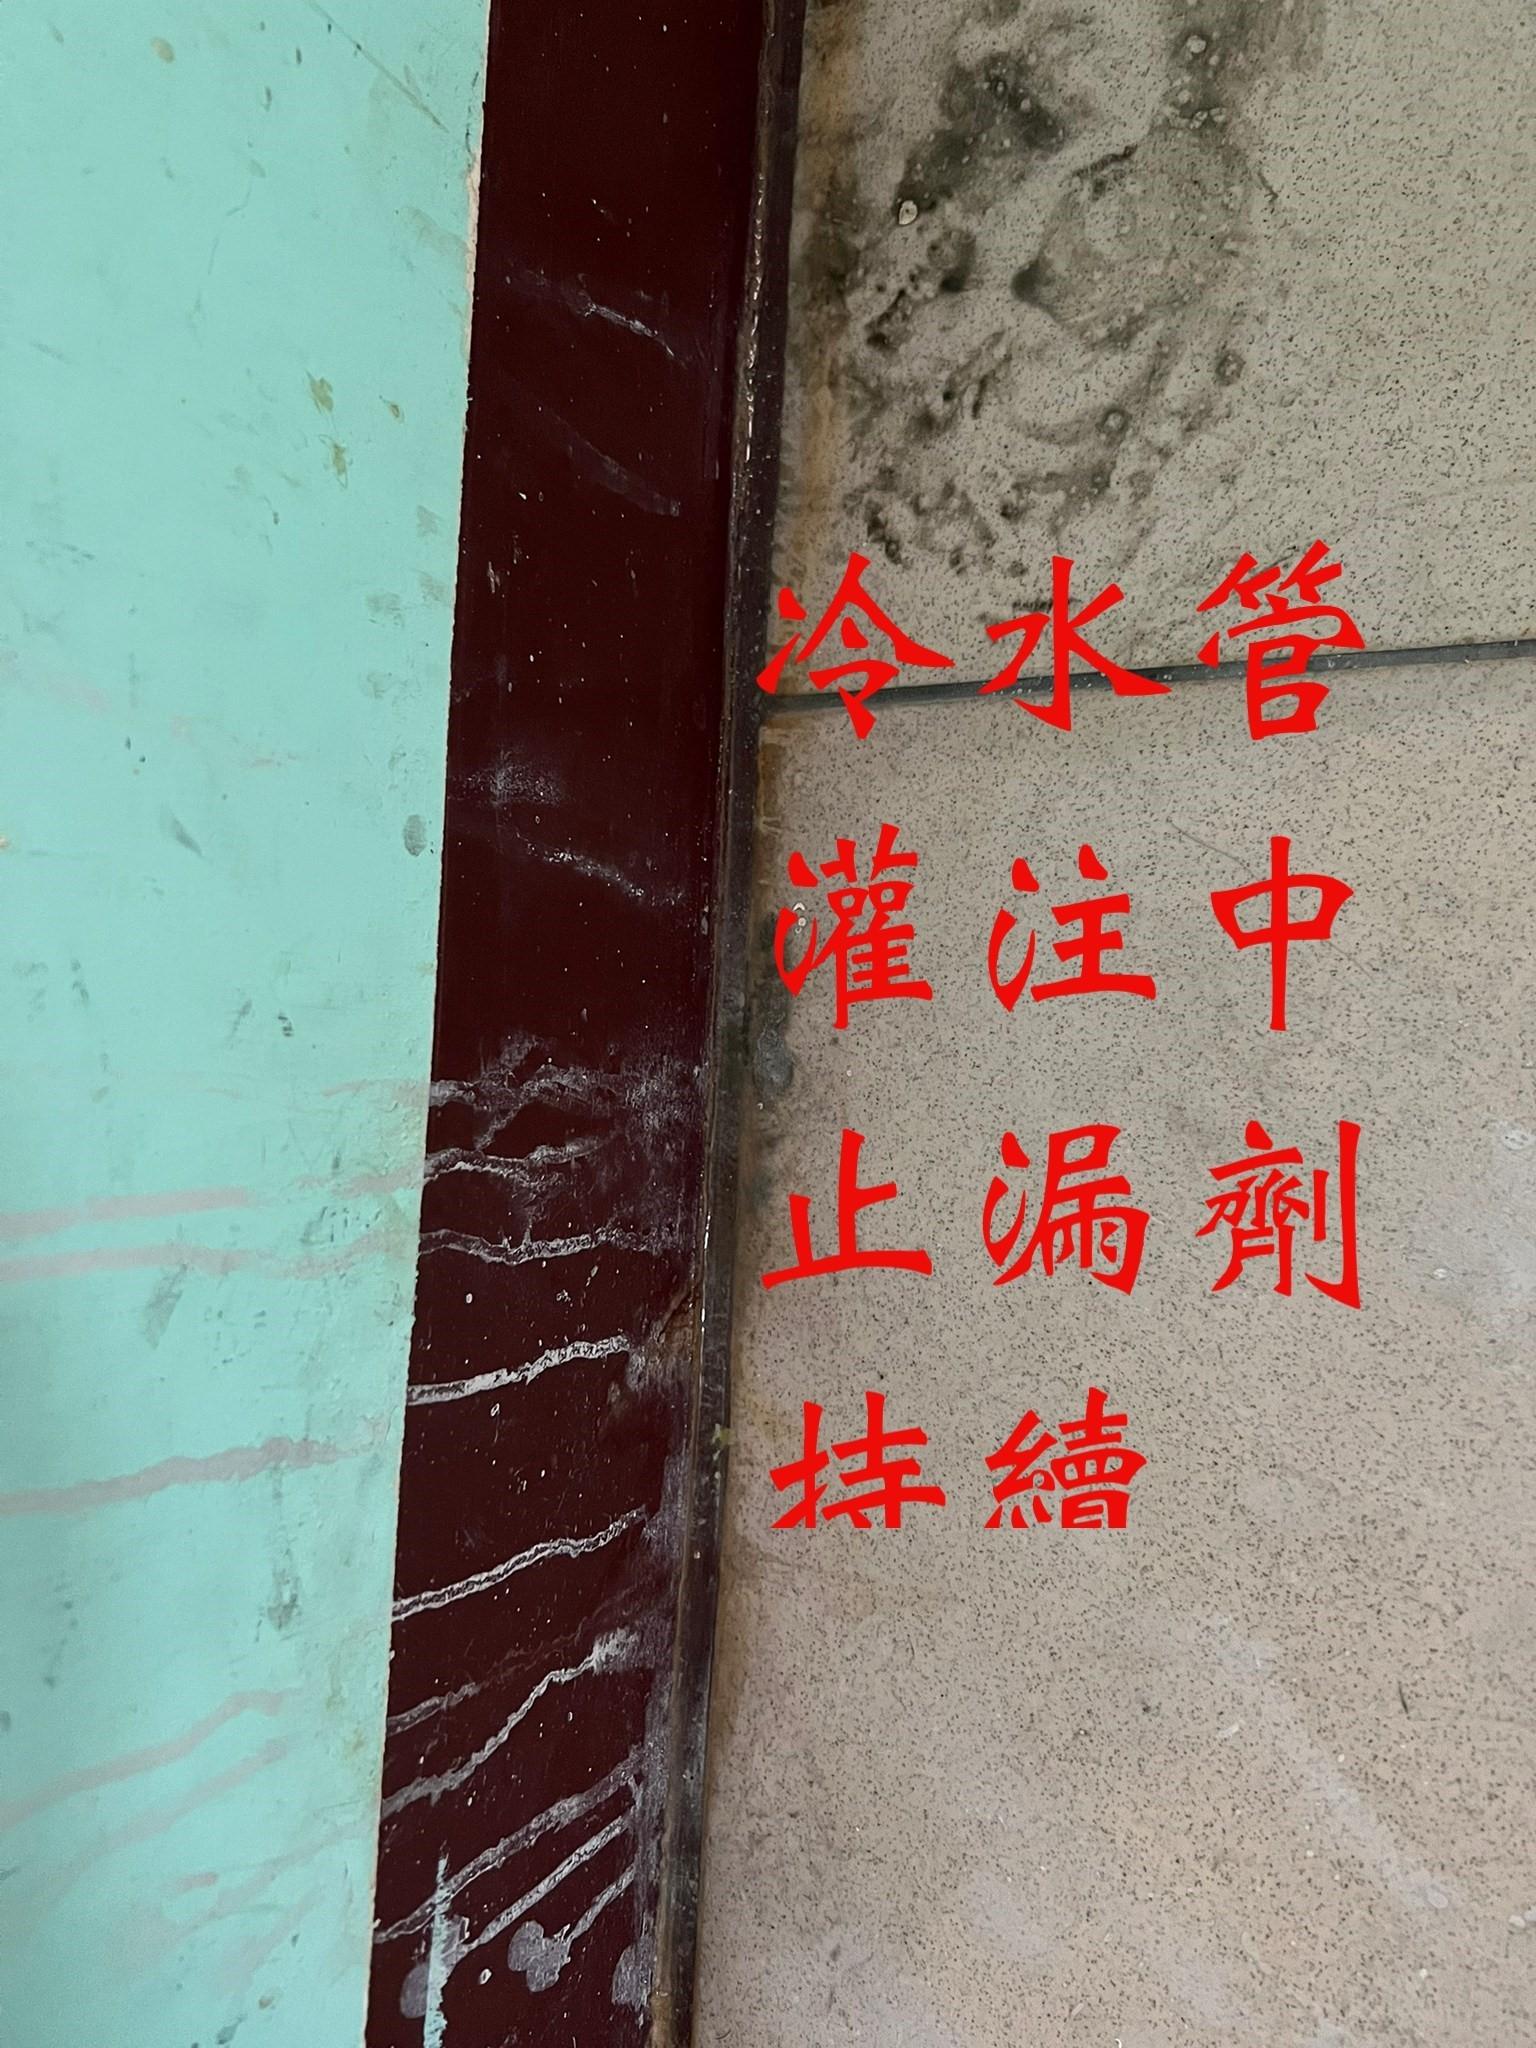 冷水管
灌注中
止漏劑
持續